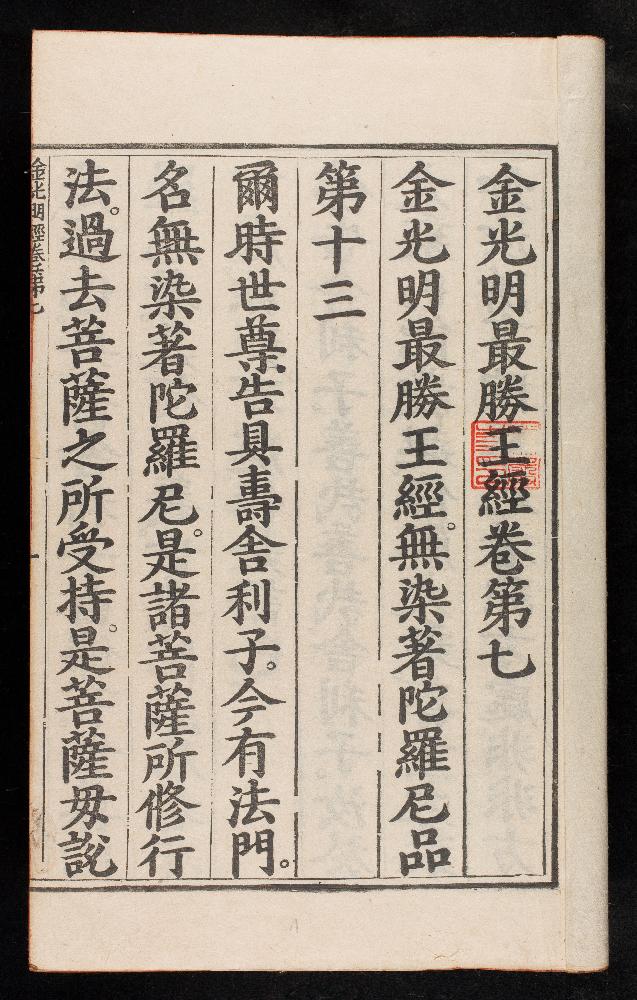 金光明最勝王經卷第七
金光明最勝王經。無染著陀羅尼品
第十三
爾時世尊告具壽舍利子。今有法門。
名無染著陀羅尼。是諸菩薩所修行
法。過去菩薩之所受持。是菩薩母。說
金光明經卷第七